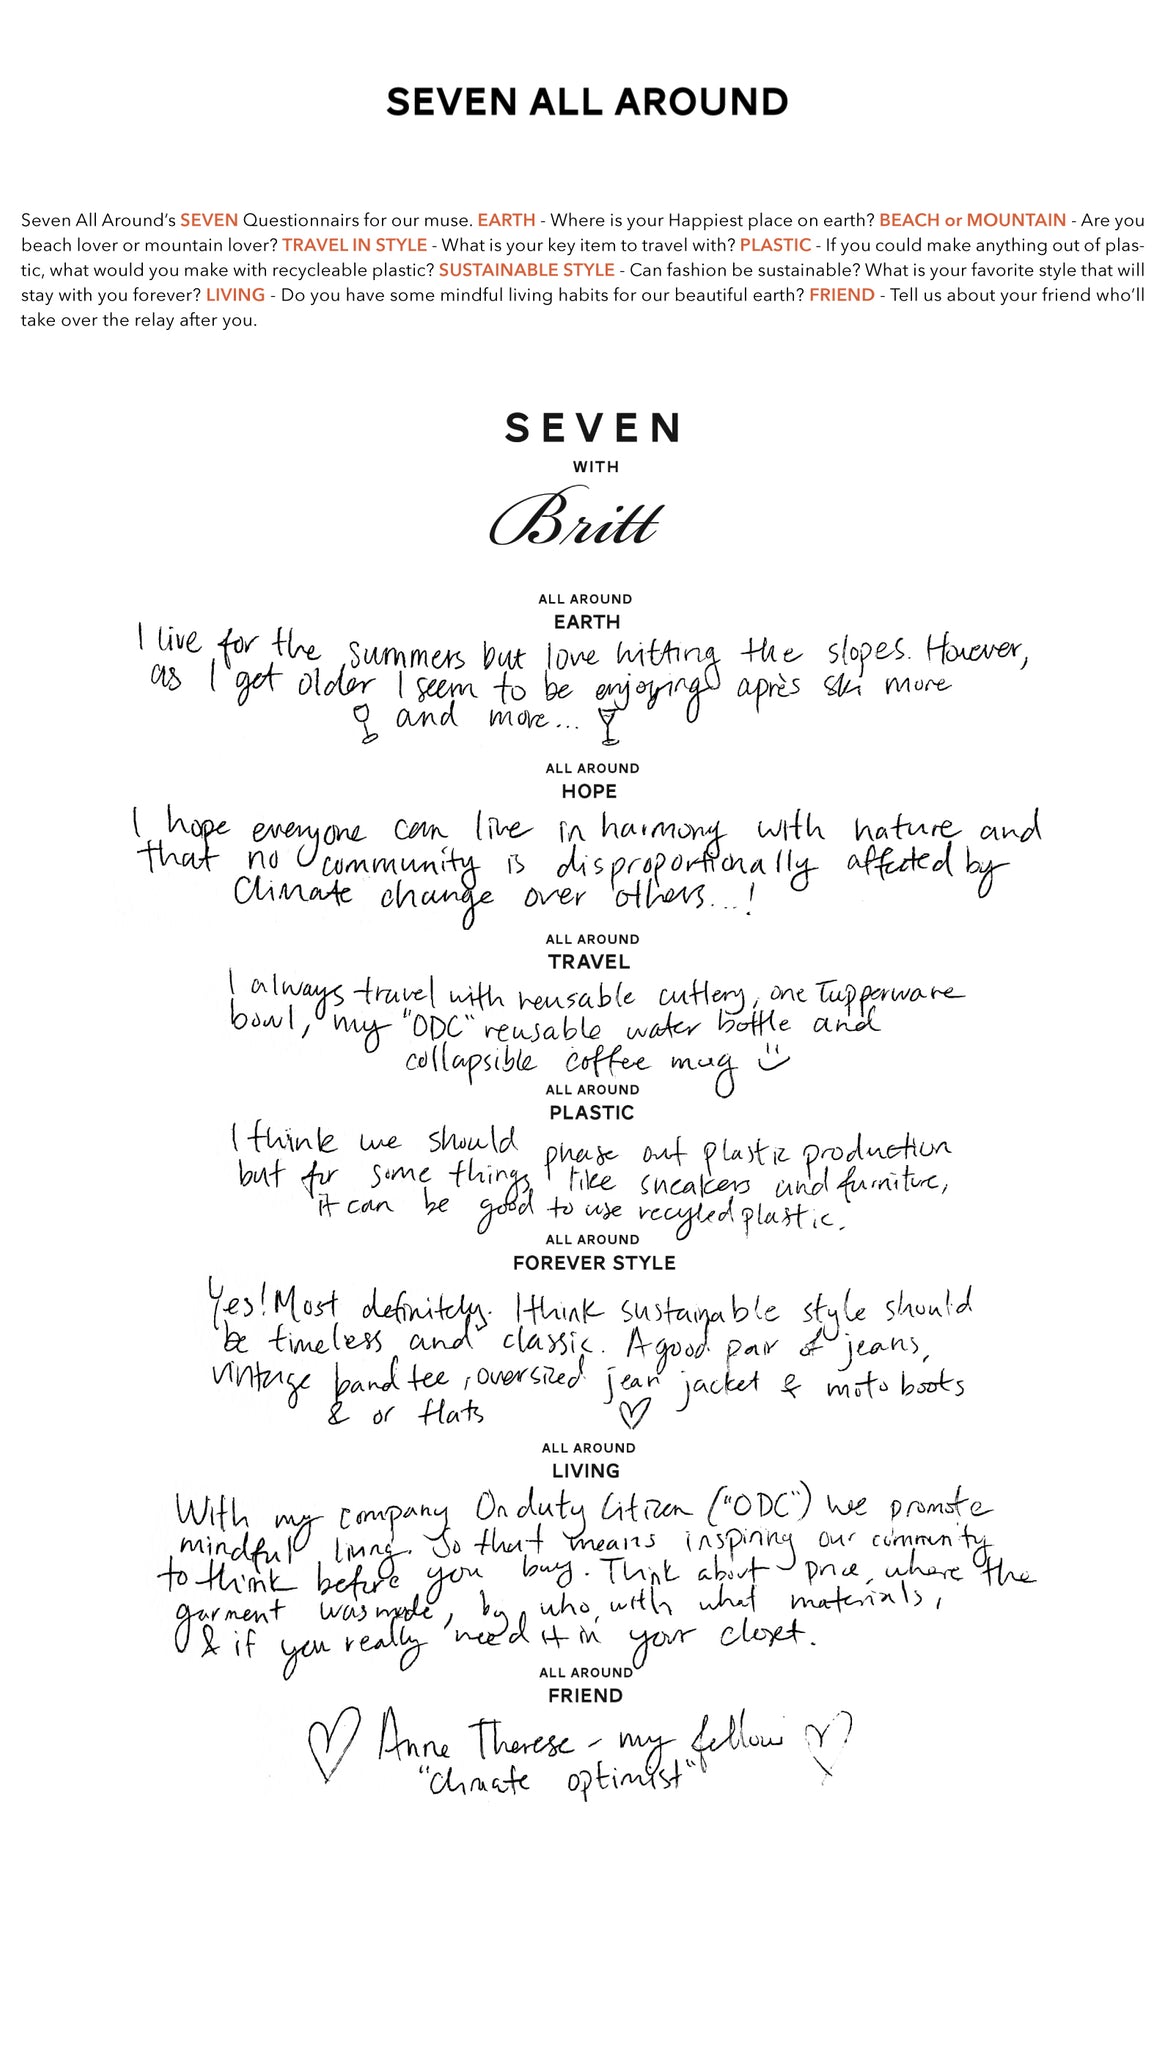 SEVEN ALL AROUND
Seven All Around's SEVEN Questionnairs for our muse. EARTH - Where is your Happiest place on earth? BEACH or MOUNTAIN - Are you
beach lover or mountain lover? TRAVEL IN STYLE - What is your key item to travel with? PLASTIC - If you could make anything out of plas-
tic, what would you make with recycleable plastic? SUSTAINABLE STYLE - Can fashion be sustainable? What is your favorite style that will
stay with you forever? LIVING - Do you have some mindful living habits for our beautiful earth? FRIEND - Tell us about your friend who'll
take over the relay after you.
SEVEN
WITH
Britt
ALL AROUND
EARTH
I live for the summers but love hitting the slopes. However,
as I get older I seem to be enjoying après ski more
and more...
ALL AROUND
HOPE
I hope everyone can live in harmony with nature and
that no community is disproportionally affected by
Climate change over others...!
ALL AROUND
TRAVEL
I always travel with reusable cutlery, one Tupperware
bowl, my "ODC" reusable water bottle and
collapsible coffee mug
ALL AROUND
PLASTIC
I think we should phase out plastic production
but for some things like sneakers and furniture,
it can be good to use recycled plastic.
ALL AROUND
FOREVER STYLE
Yes! Most definitely. I think sustainable style should
be timeless and classic. A good pair of jeans,
vintage band tee, oversized jean jacket & moto boots
& or flats
ALL AROUND
LIVING
With my company On duty Citizen ("ODC") we promote
mindful living. So that means inspiring our community
to think before you buy. Think about price, where the
garment was made, by who, with what materials,
& if you really need it in your closet.
ALL AROUND
FRIEND
Anne Therese - my fellow
"climate optimist"